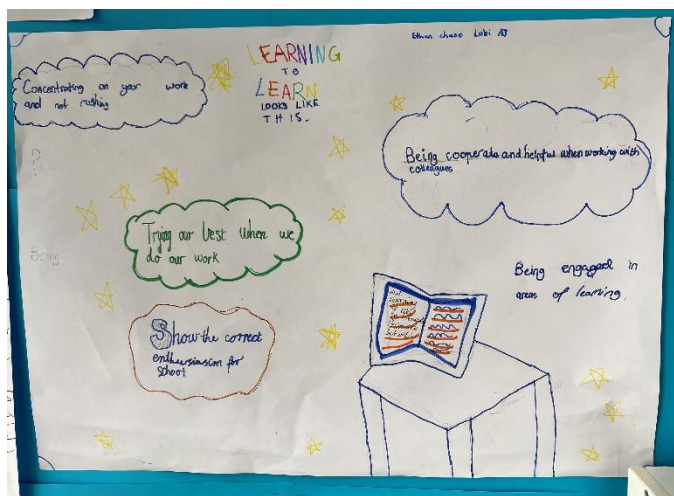 LEARNING
TO
LEARN
LOOKS LIKE
THIS.
Ethan chase Loki AJ
Concentrating on your work
and not rushing
Being cooperate and helpful when working with
colleagues
Trying our best when we
do our work
Being engaged in
areas of learning.
Show the correct
enthusiasim for
school